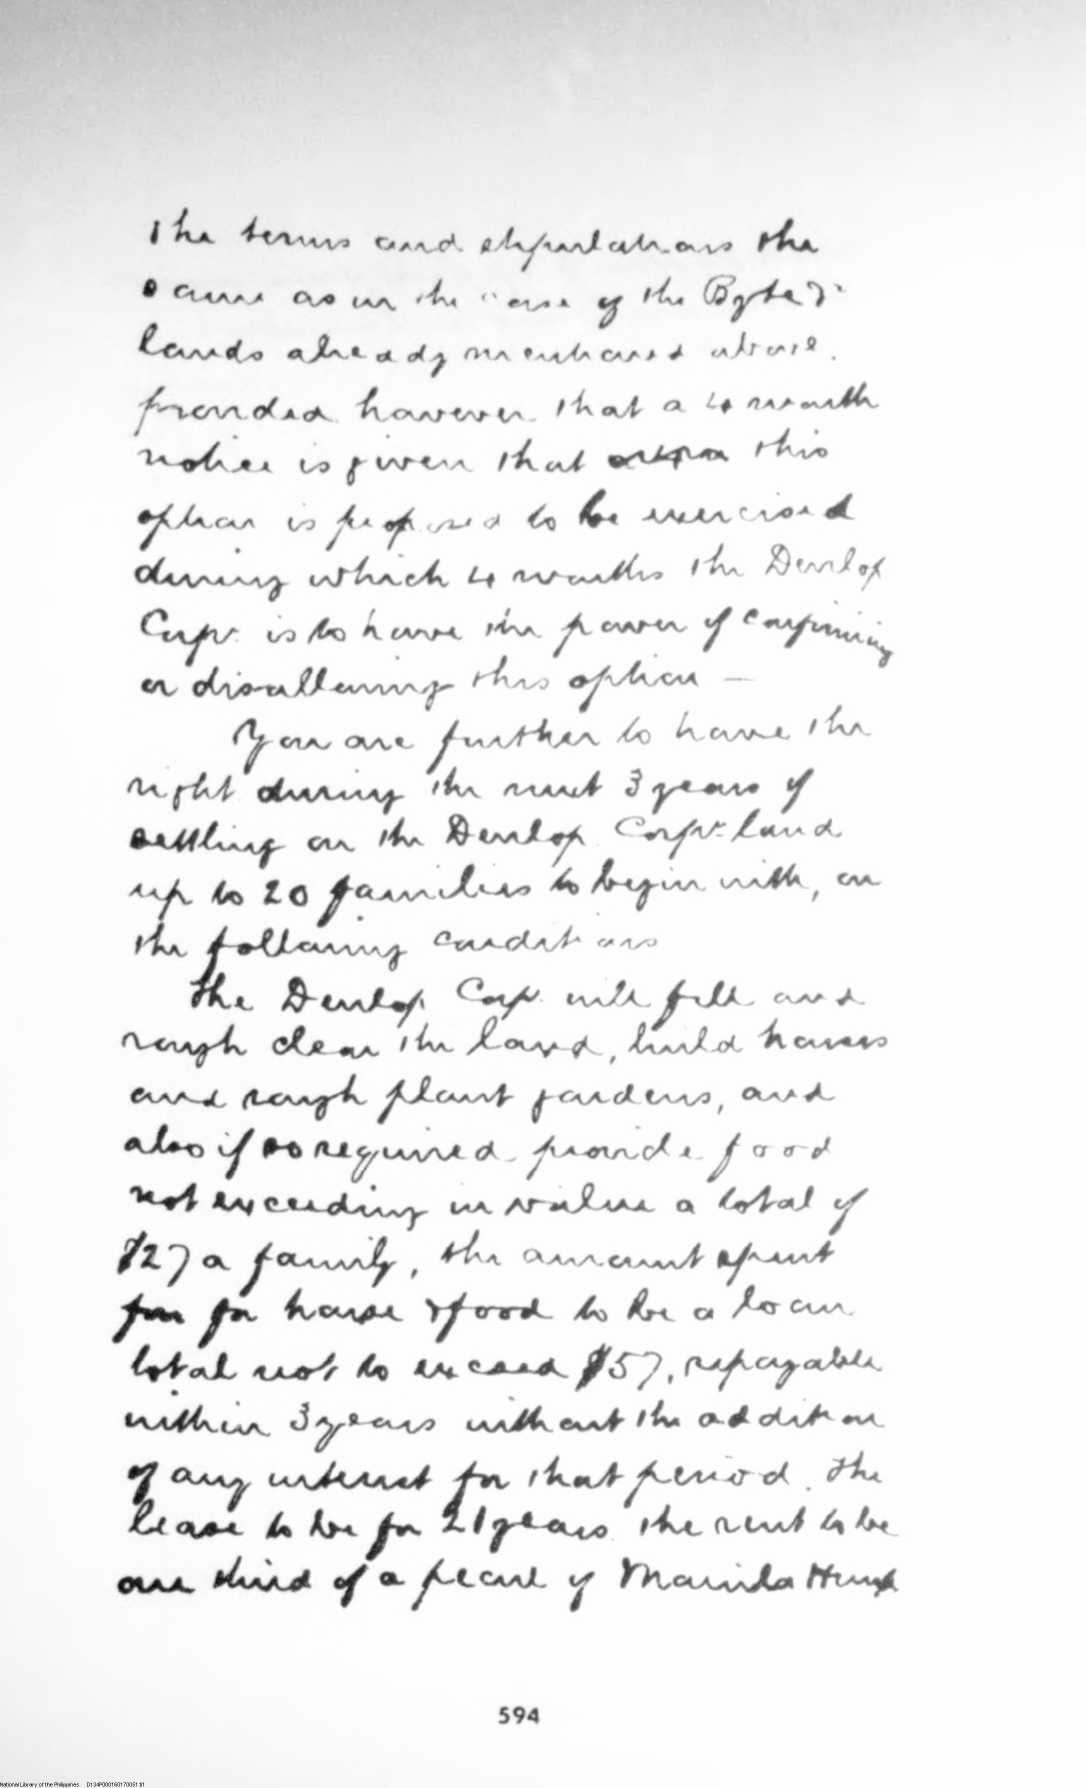 The terms and stipulations the
same as in the case of the
lands already mentioned above.
provided however that a 4 month
notice is given that this
option is proposed to be exercised
during which 4 months the Devlop
Corpn. is to have the power of confirming
or disallowing this option —
You are further to have the
right during the next 3 years of
settling on the Devlop. Corpn. land
up to 20 families to begin with, on
the following conditions
The Devlop. Corp. will fell and
rough clear the land, build houses
and rough plant gardens, and
also if so required provide food
not exceeding in value a total of
$27 a family, the amount spent
for for house & food to be a loan
total not to exceed $57, repayable
within 3 years without the addition
of any interest for that period. The
lease to be for 21 years. The rent to be
one third of a pecul of Manila Hemp
594
National Library of the Philippines